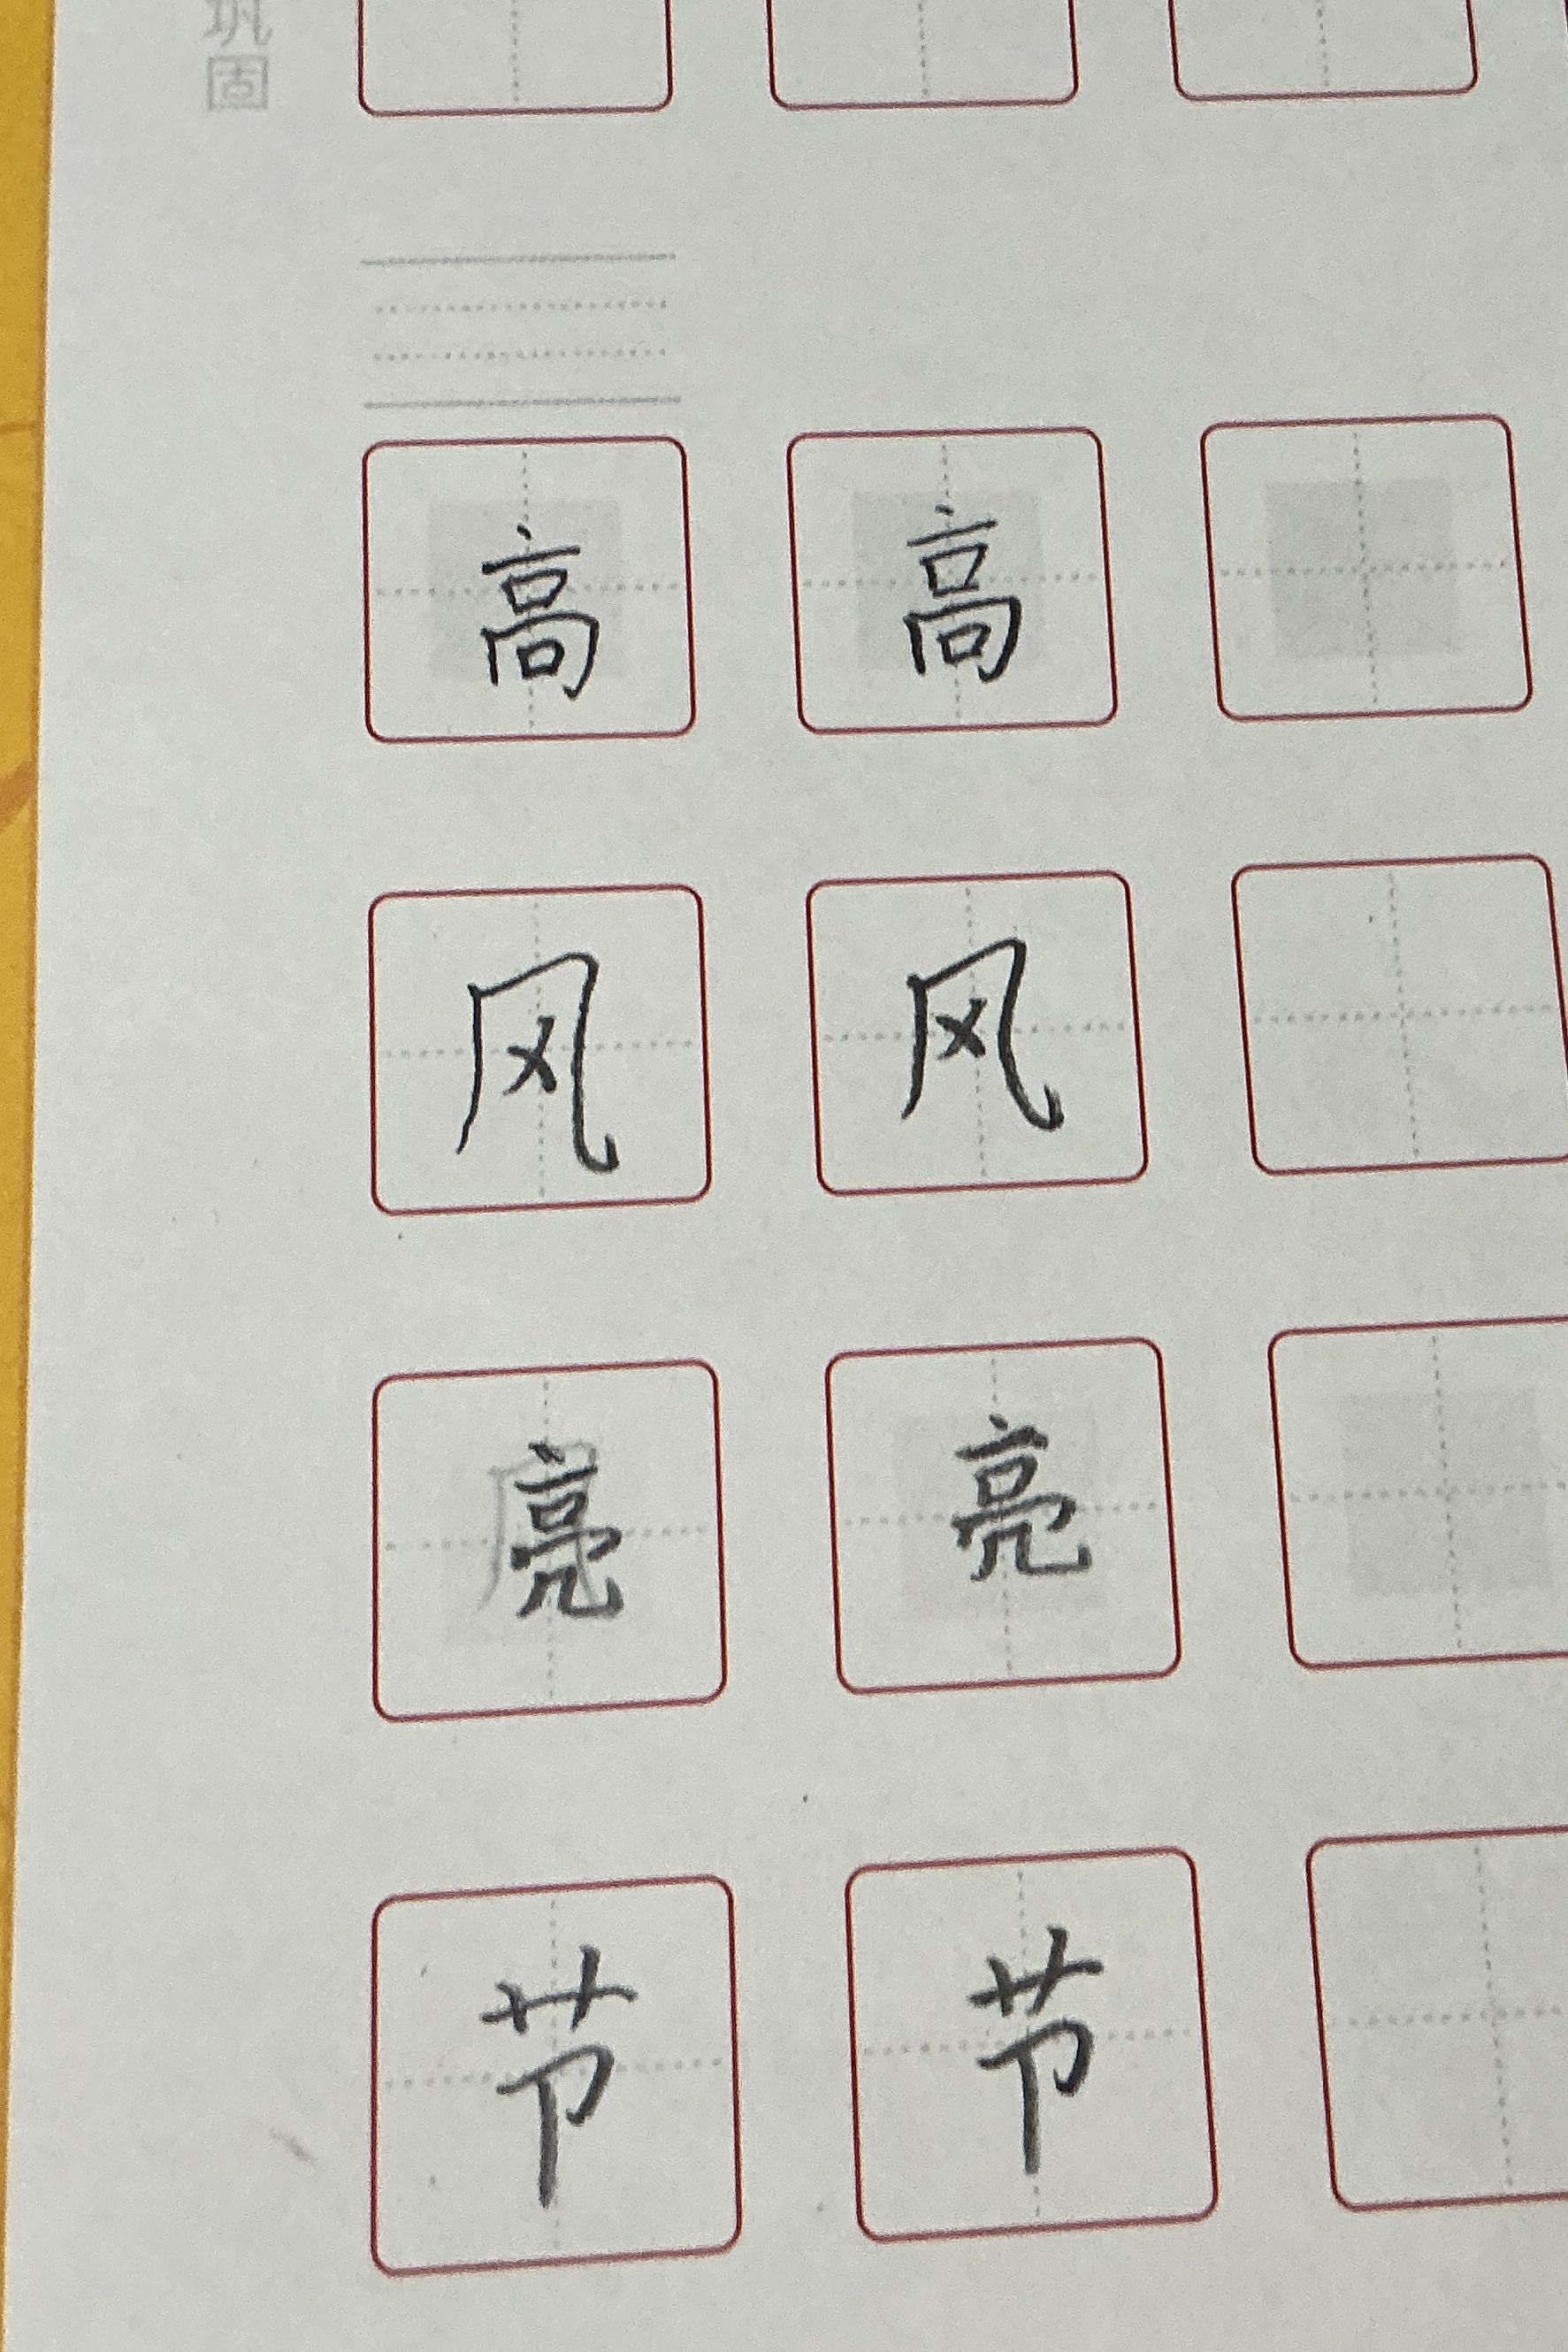 巩固
高 高
风 风
亮 亮
节 节